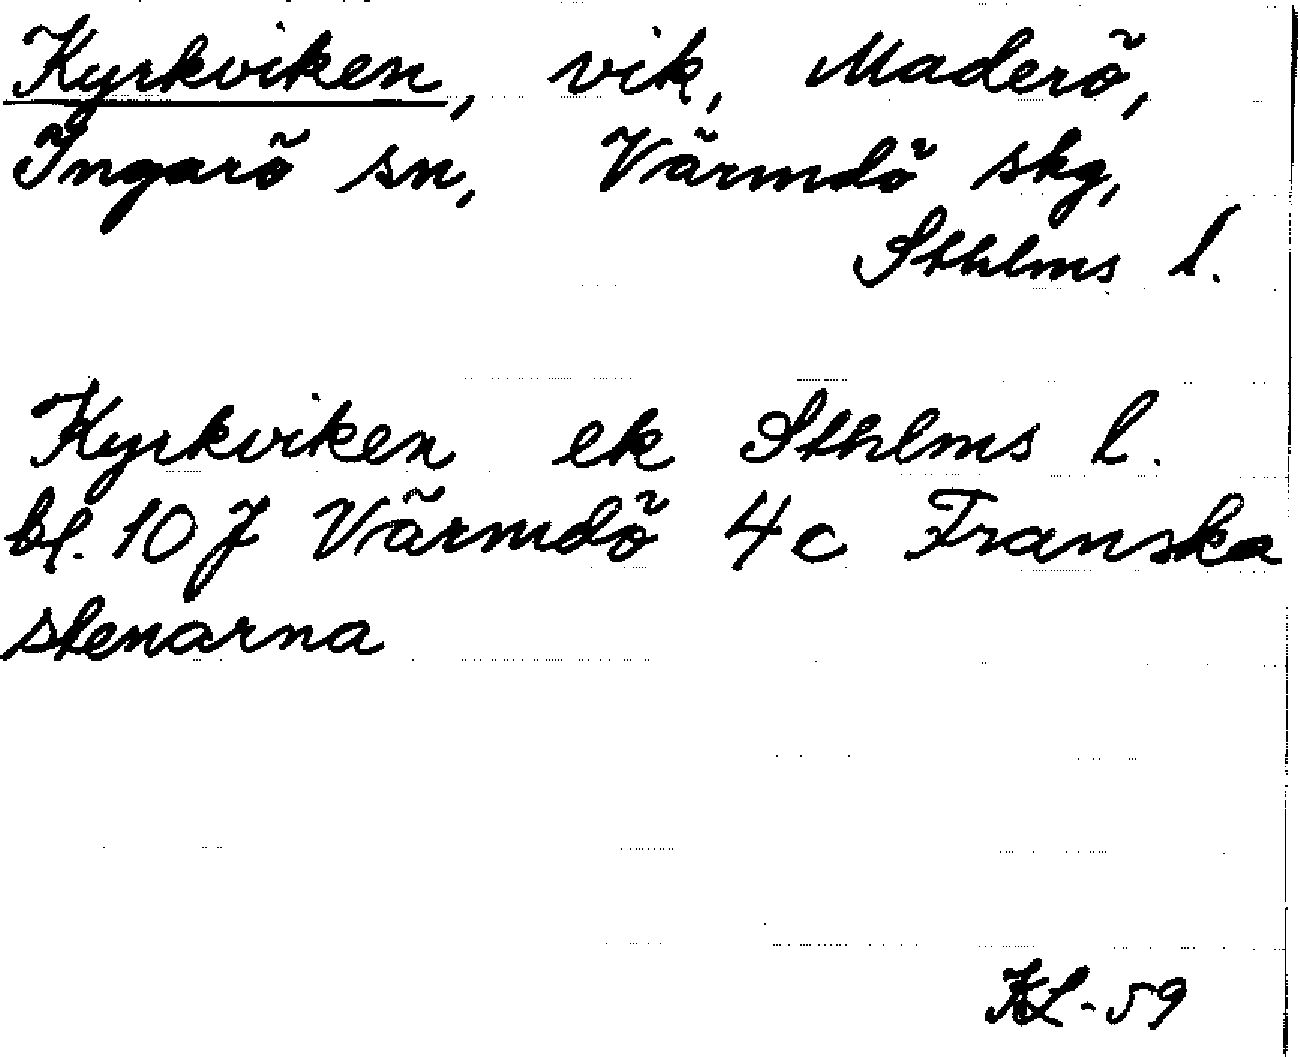 Kyrkviken, vik, Maderö,
Ingarö sn, Värmdö skg,
Sthlms l.
Kyrkviken ek Sthlms l.
bl. 10 J Värmdö 4c Franska
stenarna
KL-59